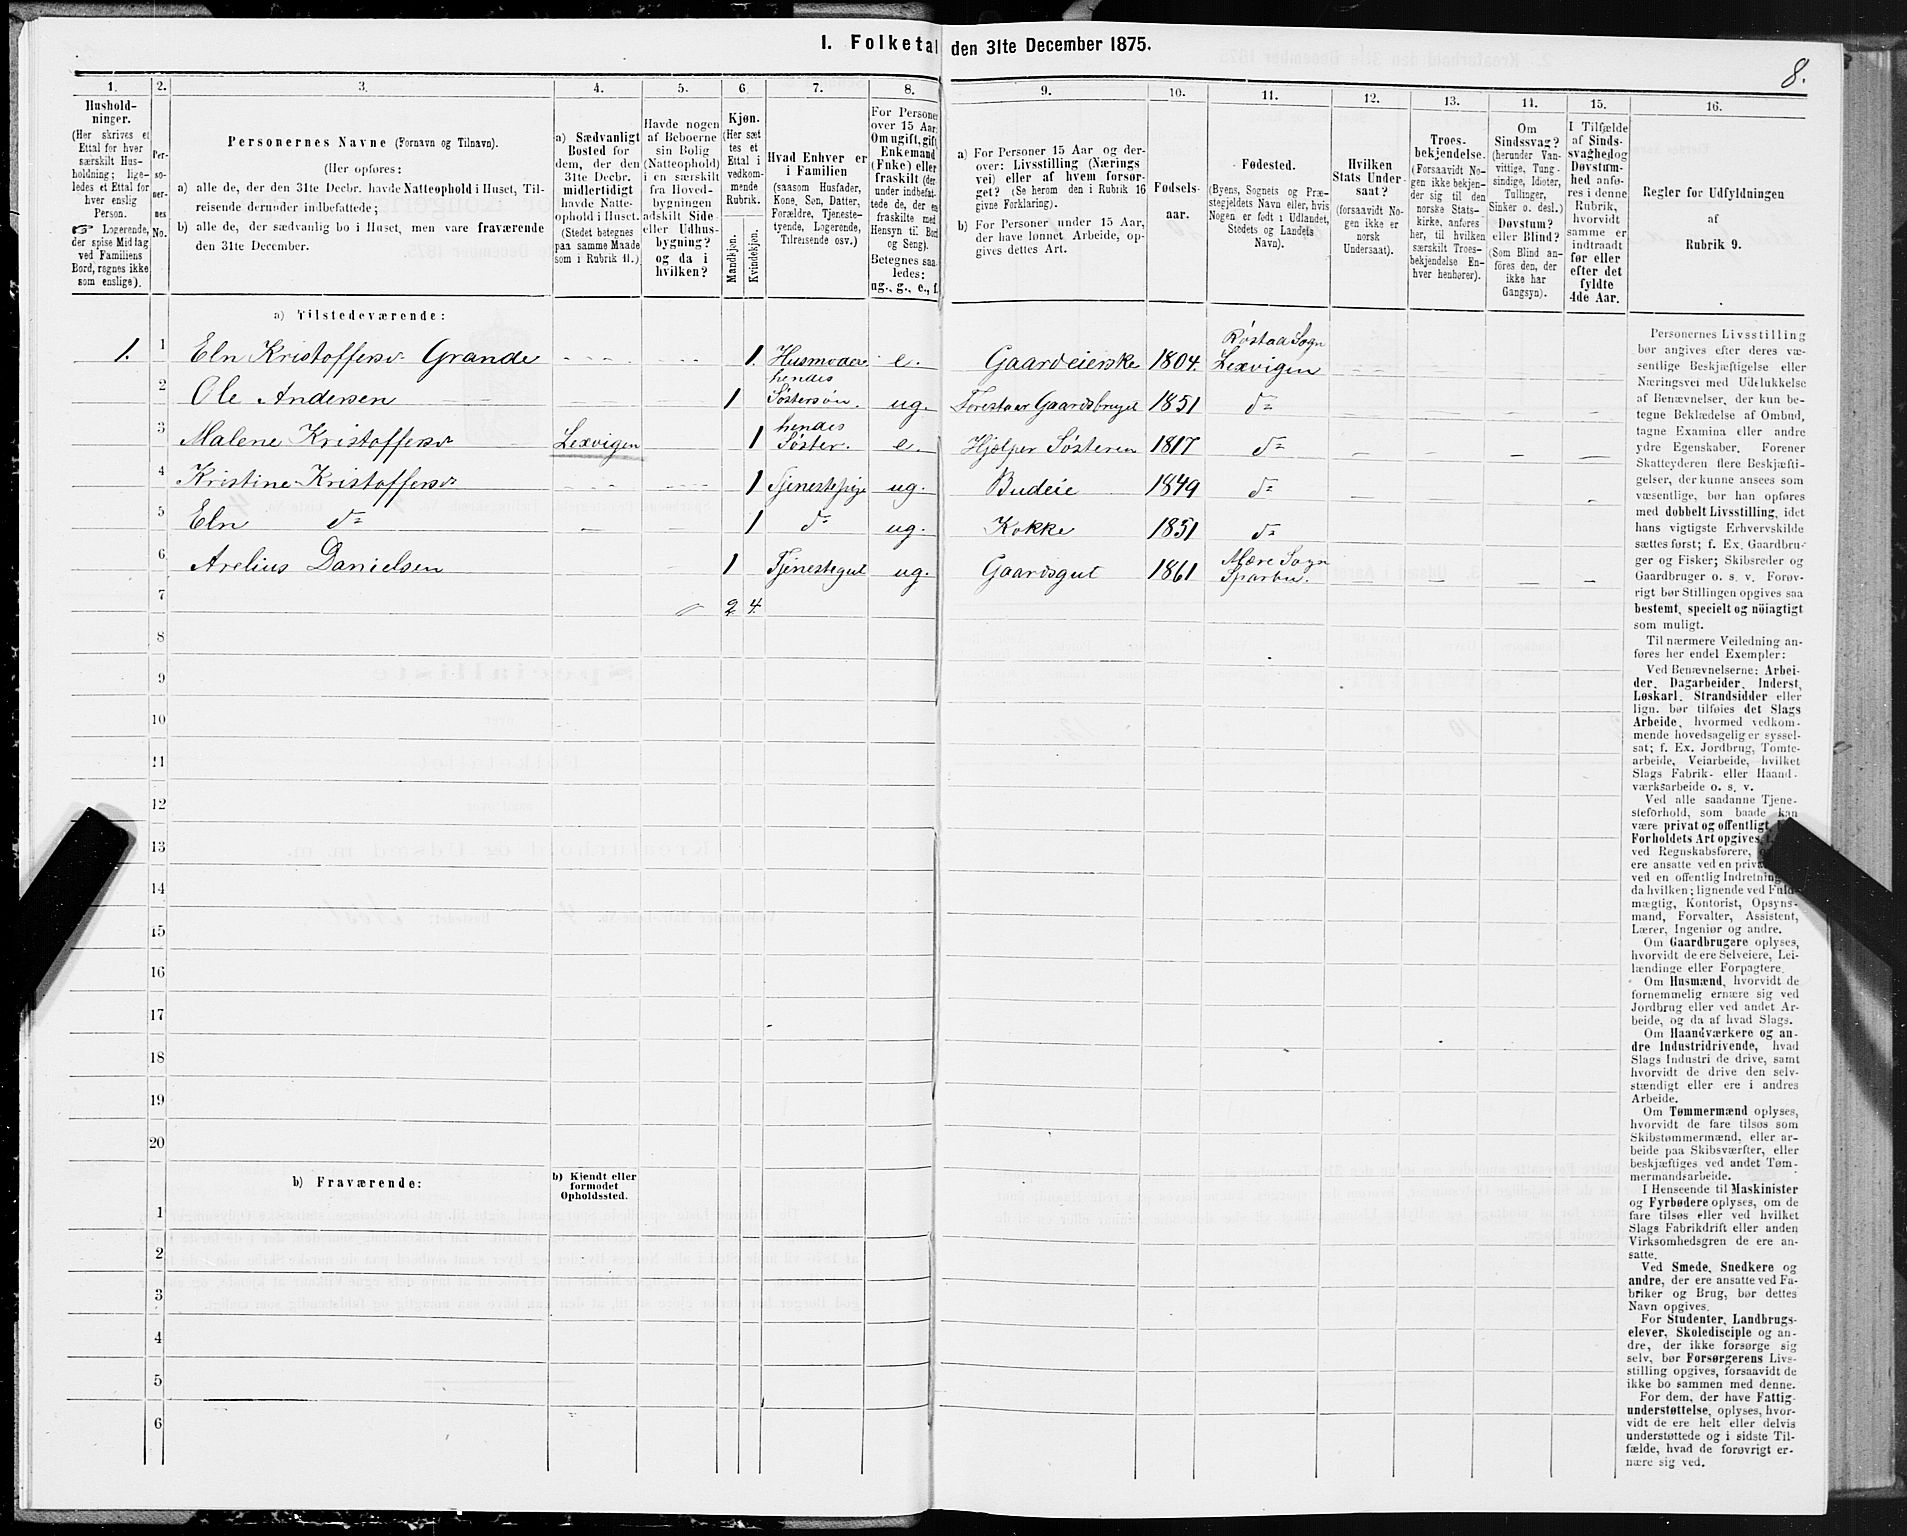 1. Folketal den 31te December 1875.
8.
1. 2. 3. 4. 5. 6 7. 8. 9. 10. 11. 12. 13. 14. 15. 16.
Hushold-
ninger.
(Her skrives et
Ettal for hver
særskilt Hus-
holdning; lige-
ledes et Ettal for
hver enslig
Person.
☞ Logerende,
der spise Middag
ved Familiens
Bord, regnes ikke
som enslige).
Per-
so-
ner-
nes
No.
Personernes Navne (Fornavn og Tilnavn).
(Her opføres:
a) alle de, der den 31te Decbr. havde Natteophold i Huset, Til-
reisende derunder indbefattede;
b) alle de, der sædvanlig bo i Huset, men vare fraværende
den 31te December.
a) Sædvanligt
Bosted for
dem, der den
31te Decbr.
midlertidigt
havde Natte-
ophold i Huset.
(Stedet betegnes
paa samme Maade
som i Rubrik 11.)
Havde nogen
af Beboerne
sin Bolig
(Natteophold)
i en særskilt
fra Hoved-
bygningen
adskilt Side-
eller Udhus-
bygning?
og da i
hvilken?
Kjøn.
(Her sæt-
tes et
Ettal i
vedkom-
mende
Rubrik.
Mandkjøn.
Kvindekjøn.
Hvad Enhver er
i Familien
(saasom Husfader,
Kone, Søn, Datter,
Forældre, Tjeneste-
tyende, Logerende,
Tilreisende osv.)
For Personer
over 15 Aar:
Om ugift, gift,
Enkemand
(Enke) eller
fraskilt (der-
under indbefat-
tede de, der ere
fraskilte med
Hensyn til Bord
og Seng).
Betegnes saa-
ledes:
ug., g., e., f.
a) For Personer 15 Aar og der-
over: Livsstilling (Nærings-
vei) eller af hvem forsør-
get? (Se herom den i Rubrik 16
givne Forklaring).
b) For Personer under 15 Aar,
der have lønnet Arbeide, op-
gives dettes Art.
Fødsels-
aar.
Fødested.
(Byens, Sognets og Præ-
stegjeldets Navn eller, hvis
Nogen er født i Udlandet,
Stedets og Landets
Navn).
Hvilken
Stats Under-
saat?
(forsaavidt No-
gen ikke er
norsk
Undersaat).
Troes-
bekjendelse.
(Forsaavidt No-
gen ikke bekjen-
der sig til den
norske Stats-
kirke, anføres
her, til hvilken
særskilt Troes-
bekjendelse En-
hver henhører).
Om
Sindssvag?
(herunder Van-
vittige, Tung-
sindige, Idioter,
Tullinger,
Sinker o. desl.)
Døvstum?
eller Blind?
(Som Blind an-
føres den, der
ikke har
Gangsyn).
I Tilfælde
af Sinds-
svaghed og
Døvstum-
hed anfø-
res i denne
Rubrik,
hvorvidt
samme er
indtraadt
før eller
efter det
fyldte
4de Aar.
Regler for Udfyldningen
af
Rubrik 9.
a) Tilstedeværende:
1. 1 Eln Kristoffersd Grande 1. Husmoder e. Gaardeierske 1804. Røstad Sogn Lexvigen
2 Ole Andersen 1 hendes Søstersøn. ug. Forestaar Gaardsbruget 1851 do
3 Malene Kristoffersd Lexvigen 1 hendes Søster. e. Hjælper Søsteren 1817 do
4 Kristine Kristoffersd 1 Tjenestepige ug. Budeie 1849 do
5 Eln do 1 do ug. Kokke 1851 do
6 Arelius Danielsen 1 Tjenestegut ug. Gaardsgut 1861 Mære Sogn Sparbu.
7 2 4.
8
9
10
11
12
13
14
15
16
17
18
19
20
b) Fraværende:
b) Kjendt eller
formodet
Opholdssted.
1
2
3
4
5
6
Personernes Livsstilling
bør angives efter deres væ-
sentlige Beskjæftigelse eller
Næringsvei med Udelukkelse
af Benævnelser, der kun be-
tegne Beklædelse af Ombud,
tagne Examina eller andre
ydre Egenskaber. Forener
Skatteyderen flere Beskjæfti-
gelser, der kunne ansees som
væsentlige, bør han opføres
med dobbelt Livsstilling, idet
hans vigtigste Erhvervskilde
sættes først; f. Ex. Gaardbru-
ger og Fisker; Skibsreder og
Gaardbruger o. s. v. Forøv-
rigt bør Stillingen opgives saa
bestemt, specielt og nöiagtigt
som muligt.
Til nærmere Veiledning an-
føres her endel Exempler:
Ved Benævnelserne: Arbei-
der, Dagarbeider, Inderst,
Løskarl, Strandsidder eller
lign. bør tilføies det Slags
Arbeide, hvormed vedkom-
mende hovedsagelig er syssel-
sat; f. Ex. Jordbrug, Tomte-
arbeide, Veiarbeide, hvilket
Slags Fabrik- eller Haand-
værksarbeide o. s. v.
Ved alle saadanne Tjene-
steforhold, som baade kan
være privat og offentligt,
Forholdets Art opgives,
ved Regnskabsførere,
ere ansatte ved en priv
ved en offentlig Indretning
da hvilken; lignende ved Fuld-
mægtig, Kontorist, Opsyns-
mand, Forvalter, Assistent,
Lærer, Ingeniør og andre.
Om Gaardbrugere oplyses,
hvorvidt de ere Selveiere, Lei-
lændinge eller Forpagtere.
Om Husmænd, hvorvidt de
fornemmelig ernære sig ved
Jordbrug eller ved andet Ar-
beide, og da af hvad Slags.
Om Haandværkere og an-
dre Industridrivende, hvad
Slags Industri de drive, samt
hvorvidt de drive den selv-
stændigt eller ere i andres
Arbeide.
Om Tømmermænd oplyses,
hvorvidt de fare tilsøs som
Skibstømmermænd, eller ar-
beide paa Skibsværfter, eller
beskjæftiges ved andet Tøm-
mermandsarbeide.
I Henseende til Maskinister
og Fyrbødere oplyses, om de
fare tilsøs eller ved hvilket
Slags Fabrikdrift eller anden
Virksomhedsgren de ere an-
satte.
Ved Smede, Snedkere og
andre, der ere ansatte ved Fa-
briker og Brug, bør dettes
Navn opgives.
For Studenter, Landbrugs-
elever, Skoledisciple og an-
dre, der ikke forsørge sig
selv, bør Forsørgerens Livs-
stilling opgives, forsaavidt de
ikke bo sammen med denne.
For dem, der have Fattig-
understøttelse, oplyses, hvor-
vidt de ere helt eller delvis
understøttede og i sidste Til-
fælde, hvad de forøvrigt er-
nære sig ved.